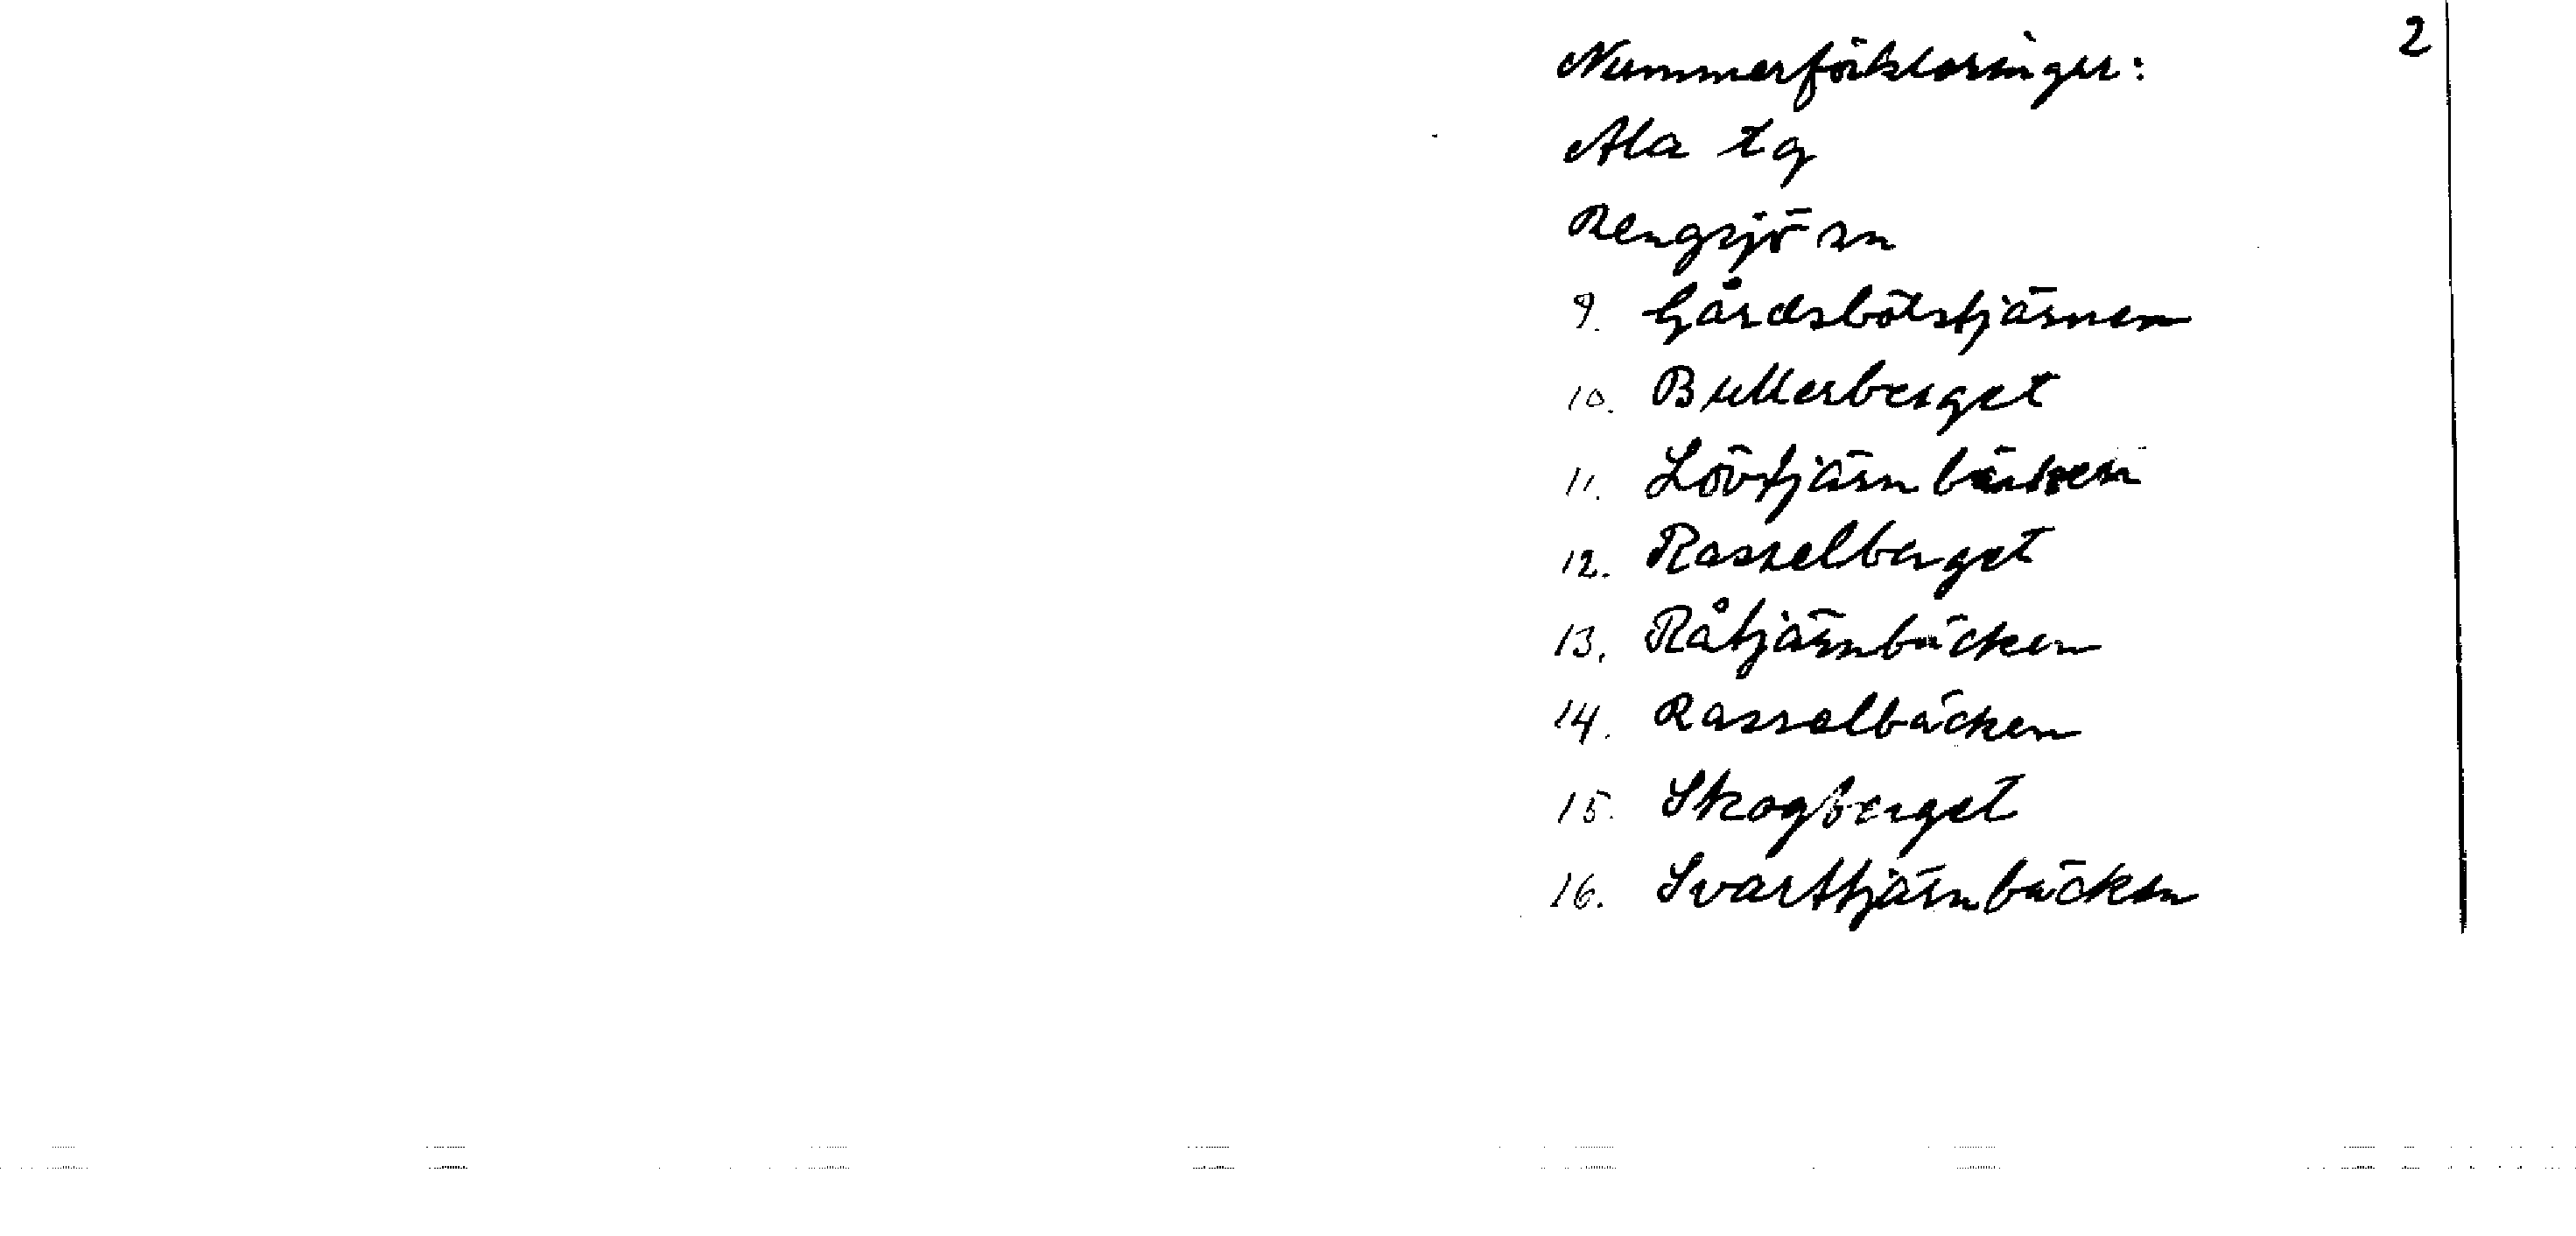 2
Nummerförklaringar:
Ala tg
Rengsjö sn
9. Gårdsbötstjärnen
10. Bullerberget
11. Lövtjärnbäcken
12. Rasselberget
13. Råtjärnbäcken
14. Rasselbäcken
15. Skogberget
16. Svarttjärnbäcken